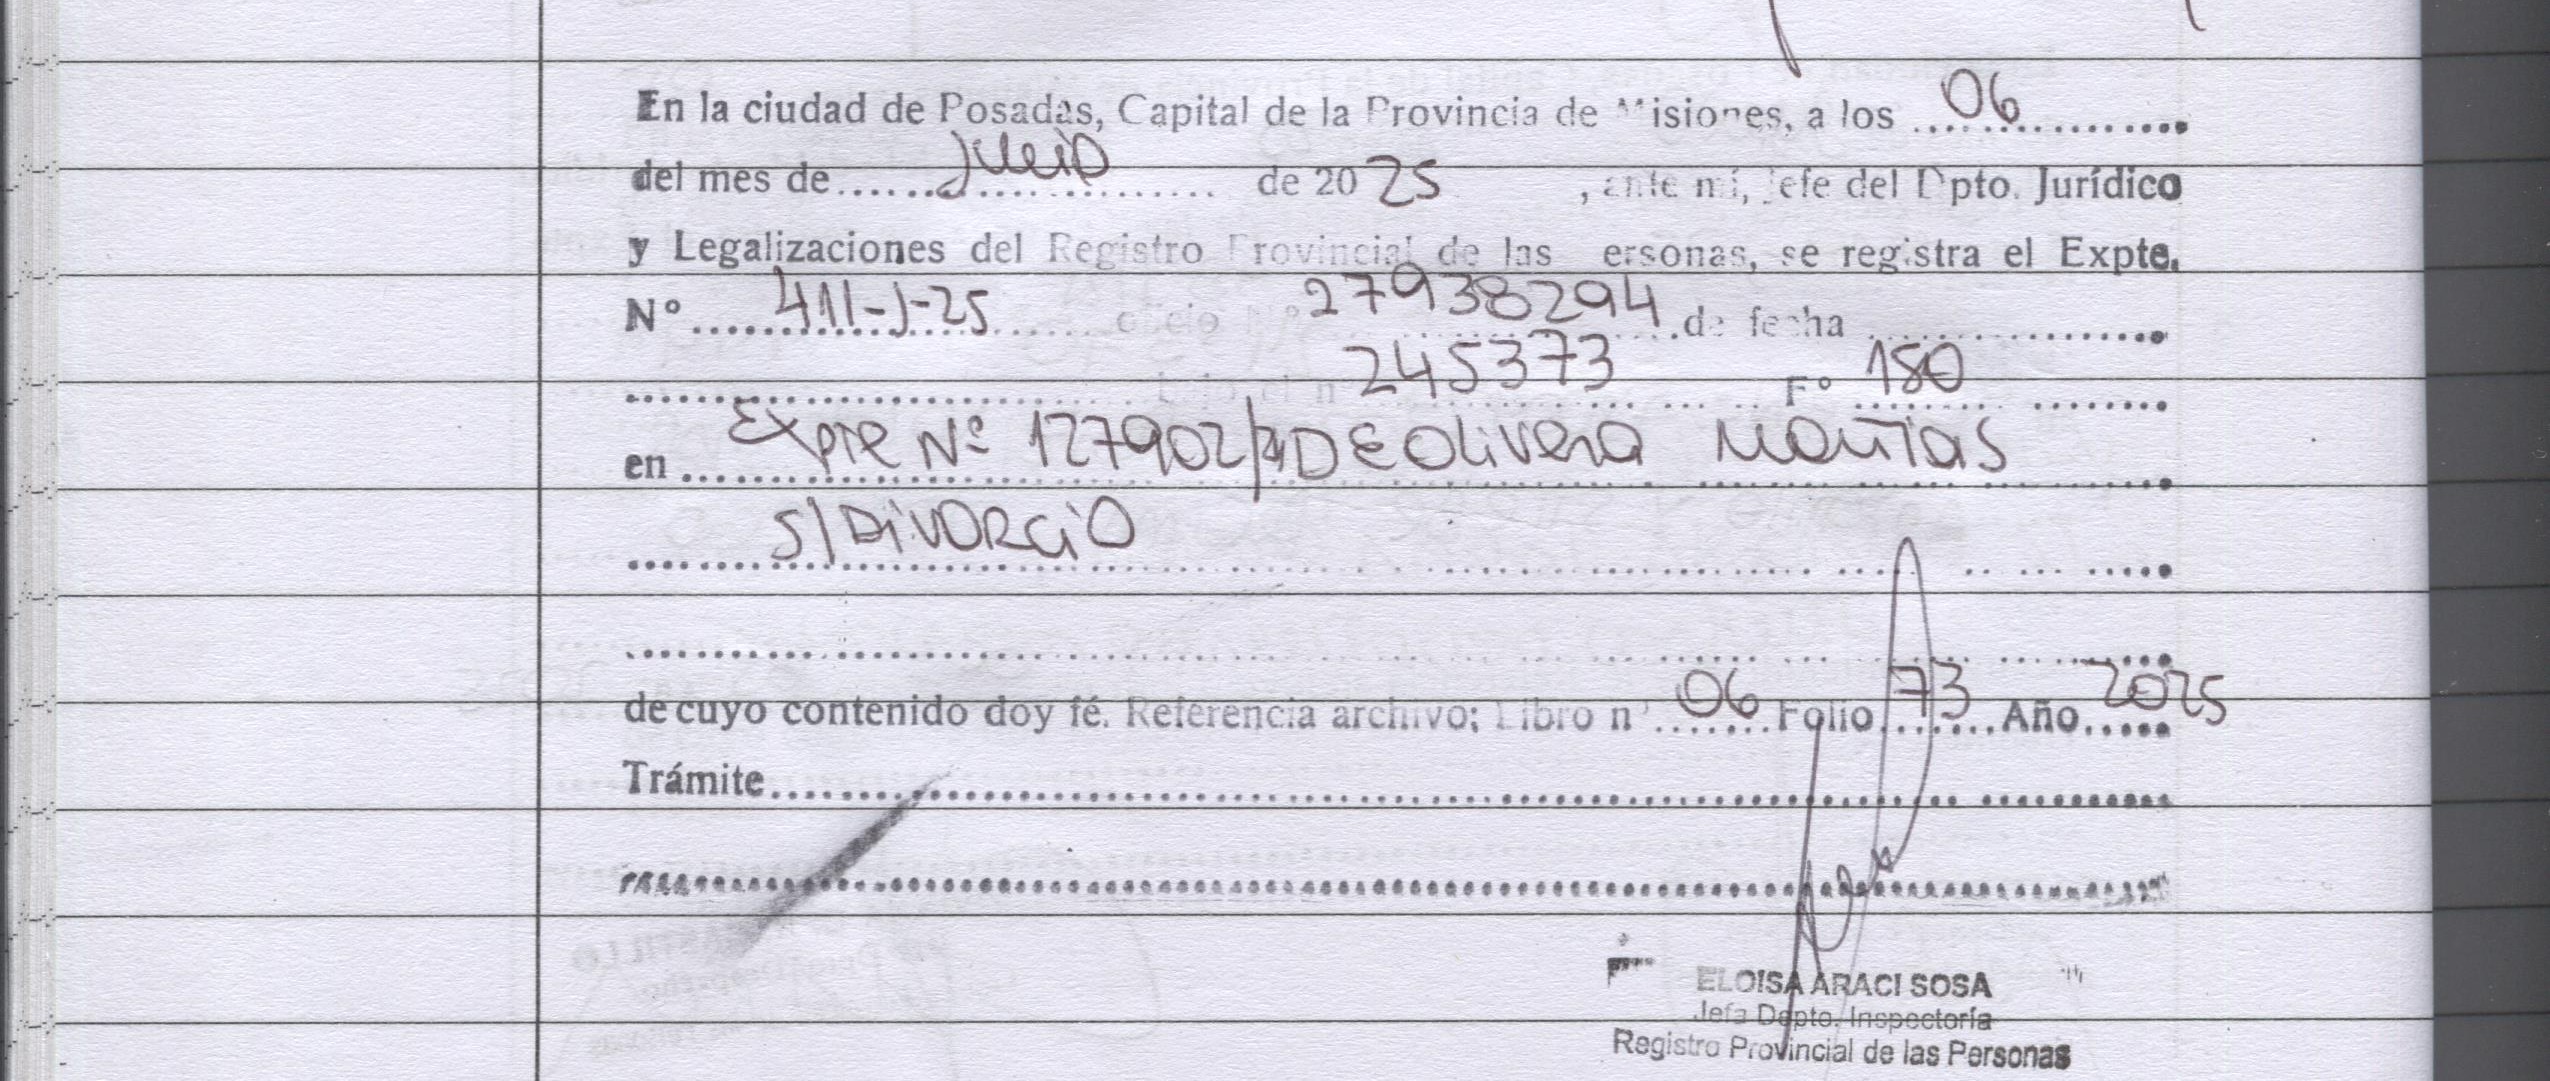 En la ciudad de Posadas, Capital de la Provincia de Misiones, a los 06
del mes de Julio de 2025, ante mí, Jefe del Dpto. Jurídico
y Legalizaciones del Registro Provincial de las ersonas, se registra el Expte.
N° 411-J-25 oficio N° 27938294 de fecha
bajo el n 245373 F° 180
en Expte Nº 127902/24 DE Olivera Matías
S/DIVORCIO
de cuyo contenido doy fé. Referencia archivo; Libro n° 06 Folio 73 Año 2025
Trámite
ELOISA ARACI SOSA
Jefa Depto. Inspectoría
Registro Provincial de las Personas